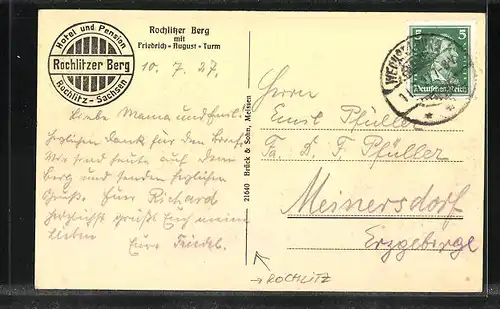 Hotel und Pension
Rochlitzer Berg
Rochlitz - Sachsen
Rochlitzer Berg
mit
Friedrich - August - Turm
10. 7. 27.
Liebe Mama und
herzlichen Dank für den
Wir sind heute auf dem
Berg und senden herzliche
Grüße. Euer Richard
herzlichst grüßt Euch meine
Lieben
Eure Friedel.
21640 Brück & Sohn, Meissen
5 5
Deutsches Reich
Herrn
Emil Pfüller
Fa. D. F. Pfüller
Meinersdorf
Erzgebirge
→ROCHLITZ